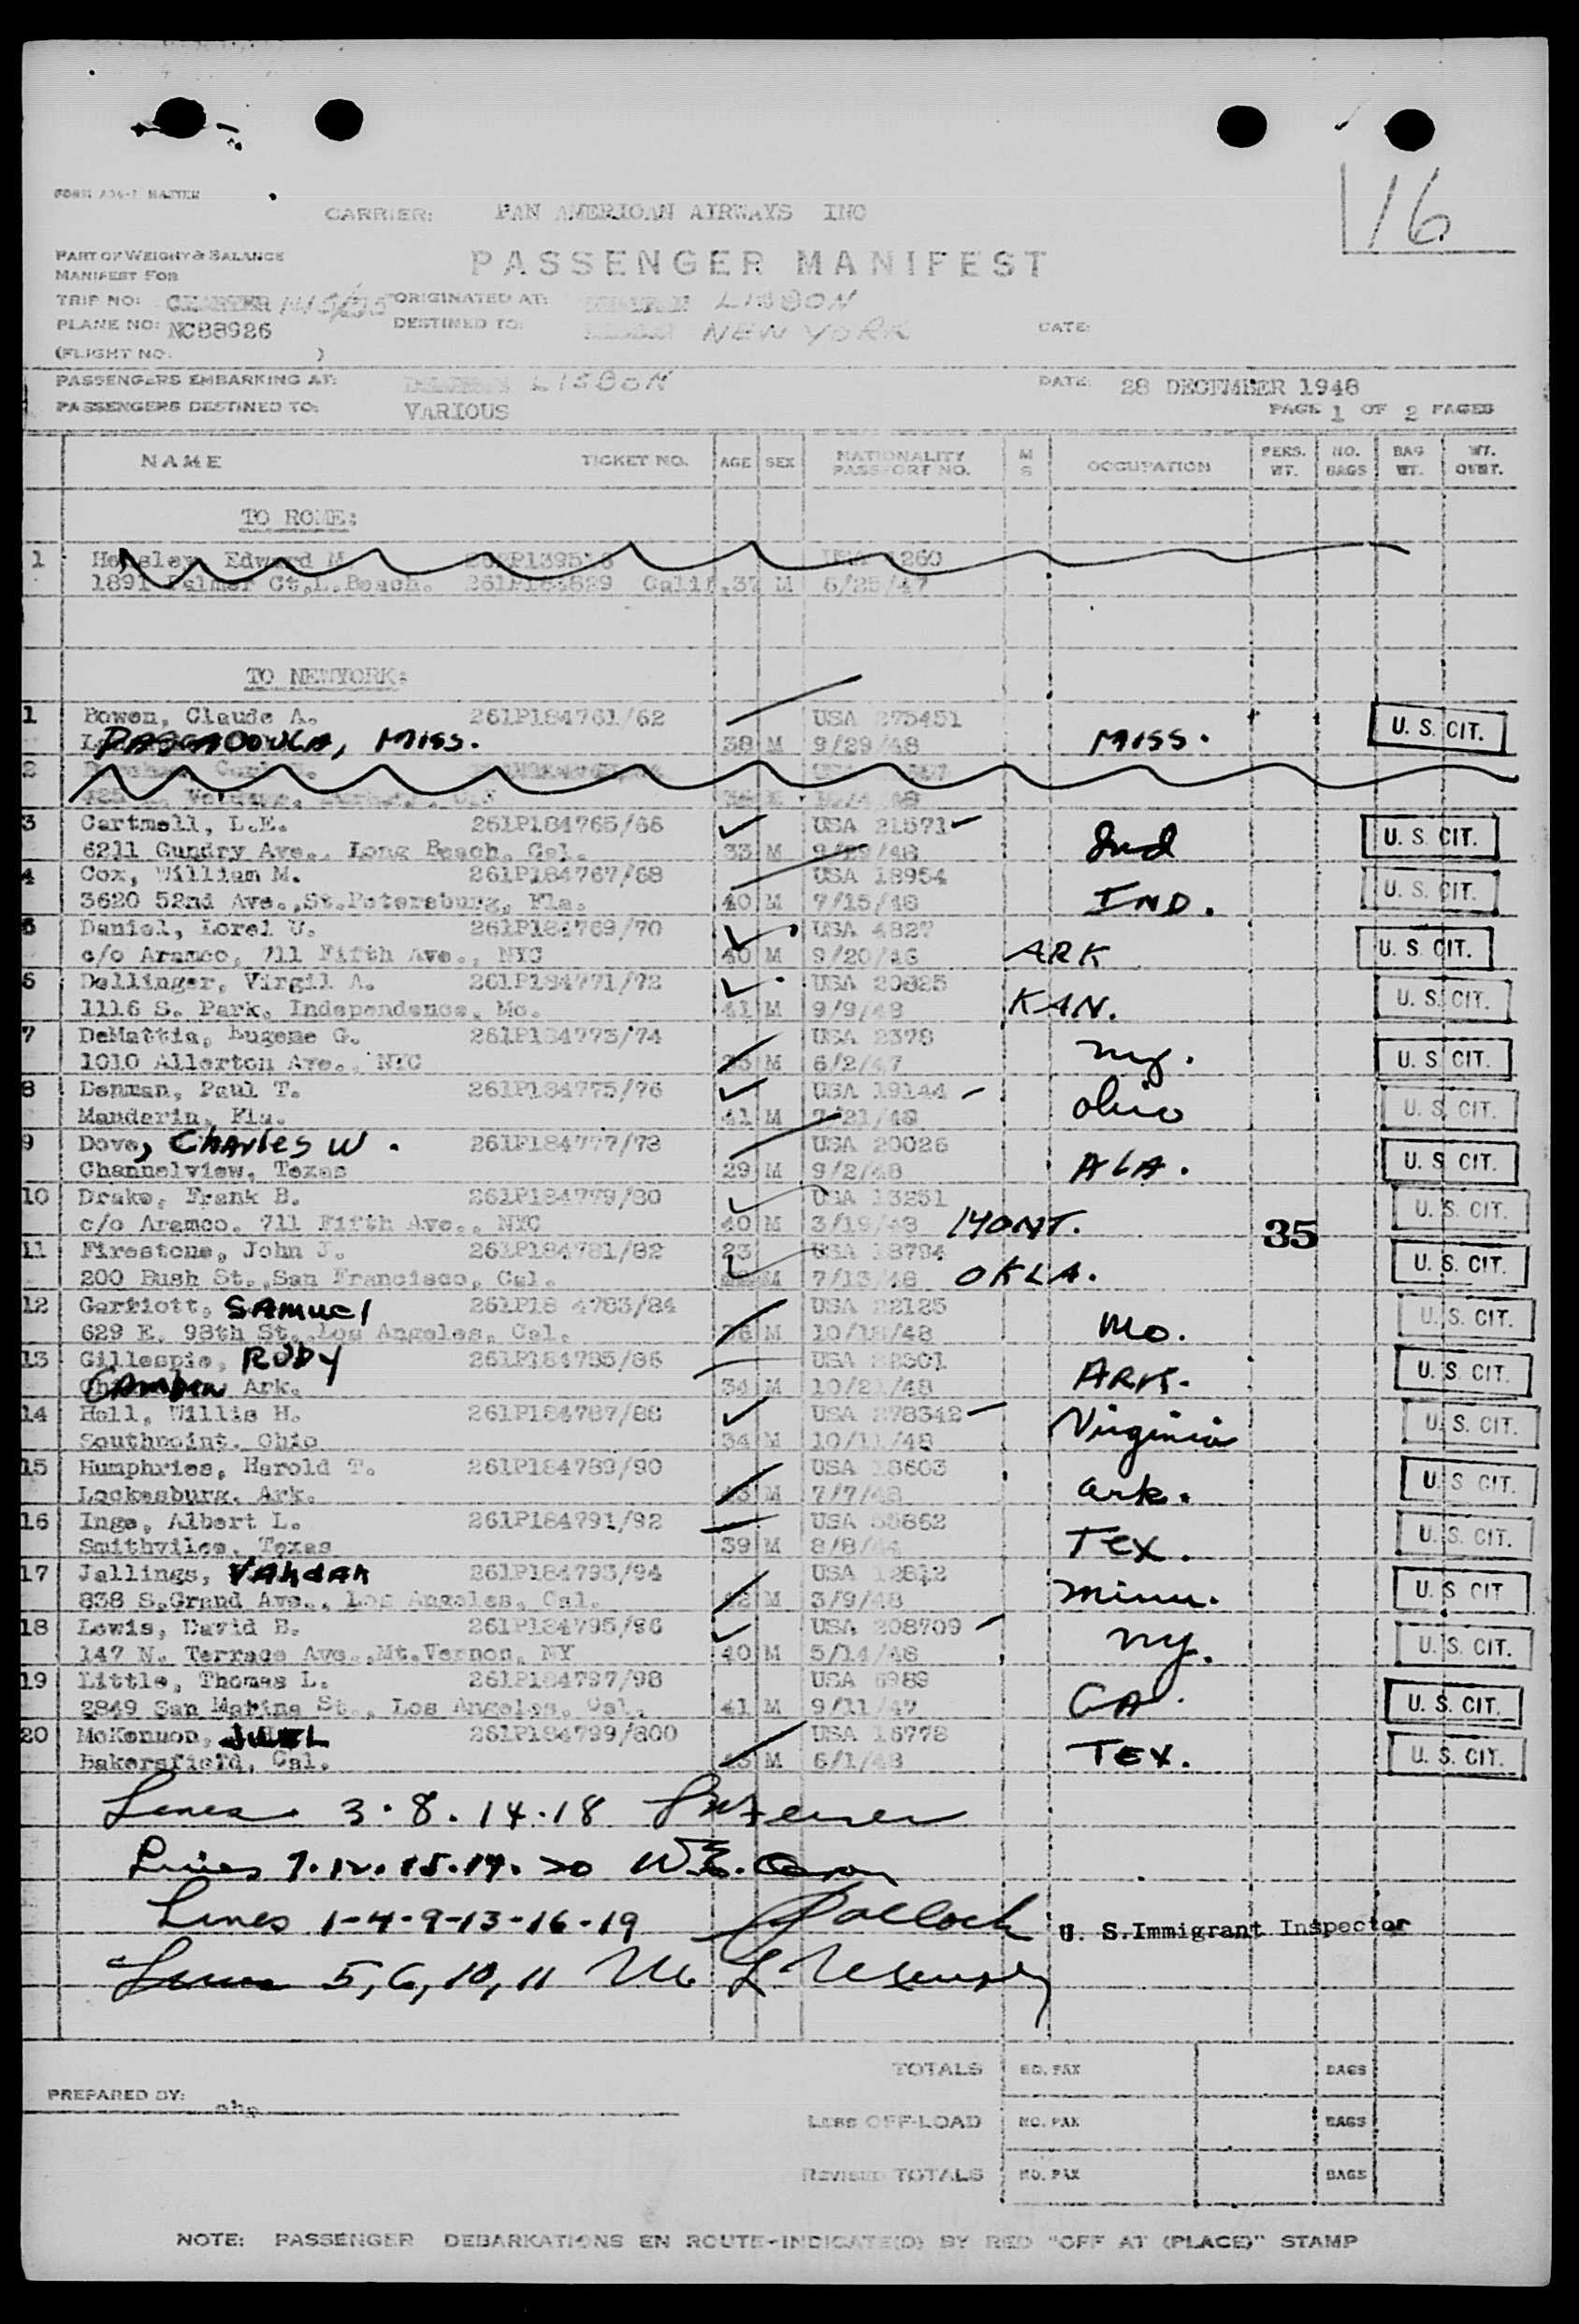 16
CARRIER: PAN AMERICAN AIRWAYS INC
PART OF WEIGHT & BALANCE
MANIFEST FOR
PASSENGER MANIFEST
TRIP NO: CHARTER ORIGINATED AT: LISBON
PLANE NO: NC88926 DESTINED TO: NEW YORK DATE:
(FLIGHT NO. )
PASSENGERS EMBARKING AT: LISBON DATE: 28 DECEMBER 1948
PASSENGERS DESTINED TO: VARIOUS PAGE 1 OF 2 PAGES
NAME TICKET NO. AGE SEX NATIONALITY PASSPORT NO. M S OCCUPATION PERS. WT. NO. BAGS BAG WT. WT. OVWT.
TO ROME:
1 Hensley, Edward M USA 1260
1891 Palmer Ct, L. Beach. Calif. 37 M 6/25/47
TO NEWYORK:
1 Bowen, Claude A. 261P184761/62 USA 275451 U. S. CIT.
PASCAGOULA, MISS. 38 M 9/29/48 MISS.
2
3 Cartmell, L.E. 261P184765/66 USA 21571 U. S. CIT.
6211 Gundry Ave., Long Beach, Cal. 33 M 9/29/48 Ind
4 Cox, William M. 261P184767/68 USA 18954 U. S. CIT.
3620 52nd Ave., St.Petersburg, Fla. 40 M 7/15/48 IND.
5 Daniel, Lorel U. 261P184769/70 USA 4827 U. S. CIT.
c/o Aramco, 711 Fifth Ave., NYC 40 M 9/20/46 ARK
6 Dellinger, Virgil A. 261P184771/72 USA 20825 U. S. CIT.
1116 S. Park, Independence, Mo. 41 M 9/9/48 KAN.
7 DeMattia, Eugene G. 261P184773/74 USA 2378 U. S. CIT.
1010 Allerton Ave., NYC M 6/2/47 NY.
8 Denman, Paul T. 261P184775/76 USA 19144 U. S. CIT.
Mandarin, Fla. 41 M 7/21/48 Ohio
9 Dove, Charles W. 261P184777/78 USA 20026 U. S. CIT.
Channelview, Texas 29 M 9/2/48 ALA.
10 Drake, Frank B. 261P184779/80 USA 13251 U. S. CIT.
c/o Aramco, 711 Fifth Ave., NYC 40 M 3/19/48 MONT. 35
11 Firestone, John J. 261P184781/82 23 USA 18794 U. S. CIT.
200 Bush St., San Francisco, Cal. M 7/13/48 OKLA.
12 Garriott, SAMUEL 261P18 4783/84 USA 22125 U. S. CIT.
629 E. 98th St., Los Angeles, Cal. 36 M 10/18/48 Mo.
13 Gillespie, RUDY 261P184785/86 USA 22301 U. S. CIT.
CAMDEN Ark. 34 M 10/21/48 ARK.
14 Hall, Willis H. 261P184787/88 USA 278342 U. S. CIT.
Southpoint, Ohio 34 M 10/11/48 Virginia
15 Humphries, Harold T. 261P184789/90 USA 18603 U. S. CIT.
Lockesburg, Ark. M 7/7/48 Ark.
16 Inge, Albert L. 261P184791/92 USA U. S. CIT.
Smithviles, Texas 39 M 8/8/44 TEX.
17 Jallings, VAHDAH 261P184793/94 USA 12812 U. S. CIT
838 S.Grand Ave., Los Angeles, Cal. M 3/9/48 Minn.
18 Lewis, David B. 261P184795/96 USA 208709 U. S. CIT.
147 N. Terrace Ave., Mt.Vernon, NY 40 M 5/14/48 NY.
19 Little, Thomas L. 261P184797/98 USA 6989 U. S. CIT.
2849 San Marina St., Los Angeles, Cal. 41 M 9/11/47 CA.
20 McKennon, JUEL 261P184799/800 USA 16778 U. S. CIT.
Bakersfield, Cal. M 6/1/48 TEX.
Lines 3.8.14.18
Lines 7.12.15.17.20
Lines 1-4-9-13-16-19 Pollock U. S.Immigrant Inspector
Lines 5, 6, 10, 11
TOTALS NO. PAX BAGS
PREPARED BY:
LESS OFF-LOAD NO. PAX BAGS
REVISED TOTALS NO. PAX BAGS
NOTE: PASSENGER DEBARKATIONS EN ROUTE-INDICATE(D) BY RED "OFF AT (PLACE)" STAMP